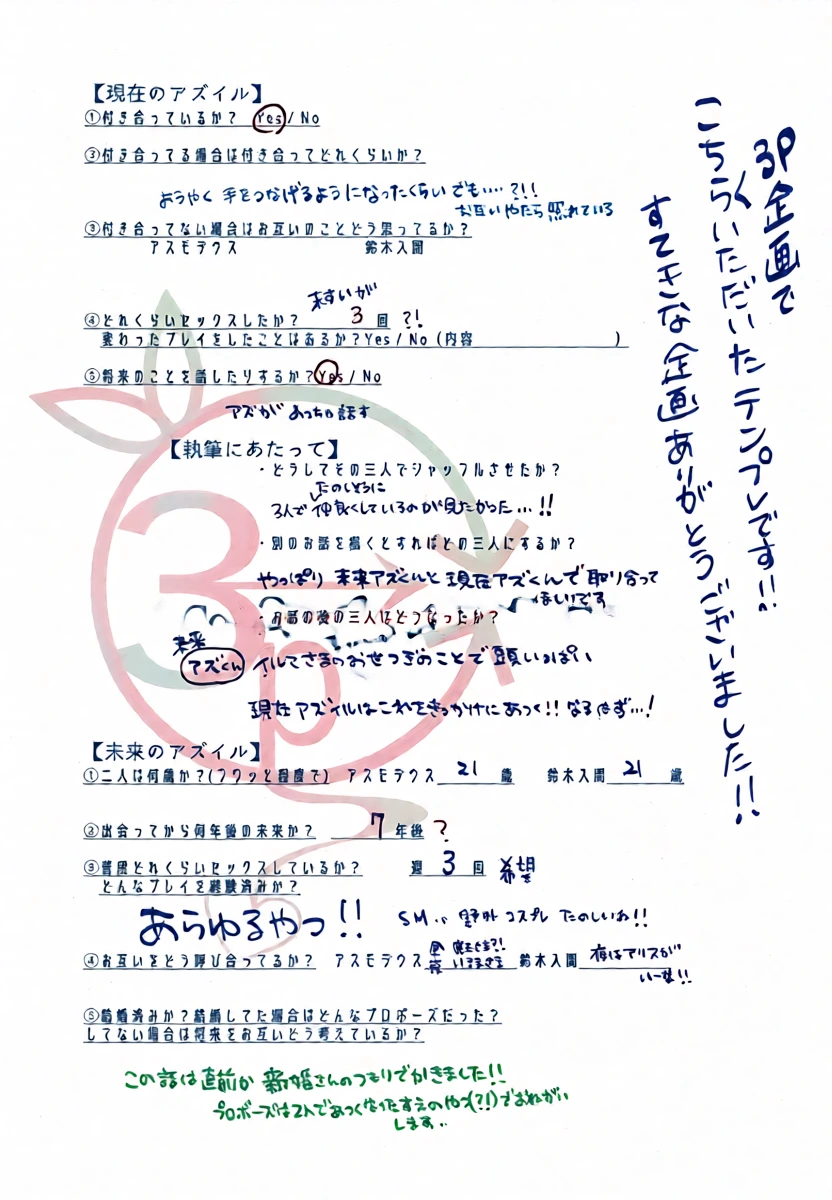 【現在のアズイル】
①付き合っているか? Yes / No
②付き合ってる場合は付き合ってどれくらいか?
ようやく手をつなげるようになったくらいでも…?!!
お互いやたら照れている
③付き合ってない場合はお互いのことどう思ってるか?
アスモデウス 鈴木入間
④どれくらいセックスしたか? 未すいが 3 回 ?!
変わったプレイをしたことはあるか?Yes / No (内容 )
⑤将来のことを話したりするか? Yes / No
アズがめっちゃ話す
【執筆にあたって】
・どうしてその三人でシャッフルさせたか?
たのしそうに
3人で仲良くしているのが見たかった…!!
・別のお話を描くとすればどの三人にするか?
やっぱり未来アズくんと現在アズくんで取り合って
ほしいです
・お話の後の三人はどうなったか?
未来
アズくん イルマさまのおせつぎのことで頭いっぱい
現在アズイルはこれをきっかけにあつく!!なるはず…!
【未来のアズイル】
①二人は何歳か?(フワッと程度で) アスモデウス 21 歳 鈴木入間 21 歳
②出会ってから何年後の未来か? 7 年後 ?
③普段どれくらいセックスしているか? 週 3 回 希望
どんなプレイを経験済みか?
あらゆるやつ!! SM.. 野外 コスプレ たのしいね!!
④お互いをどう呼び合ってるか? アスモデウス いるまさま 鈴木入間 夜はアリスが
いーな!!
⑤結婚済みか?結婚してた場合はどんなプロポーズだった?
してない場合は将来をお互いどう考えているか?
この話は直前か新婚さんのつもりでかきました!!
プロポーズは2人であつくなったすえのやつ(?!)でおねがい
します..
3P企画で
こちらいただいたテンプレです!!
すてきな企画ありがとうございました!!
3p